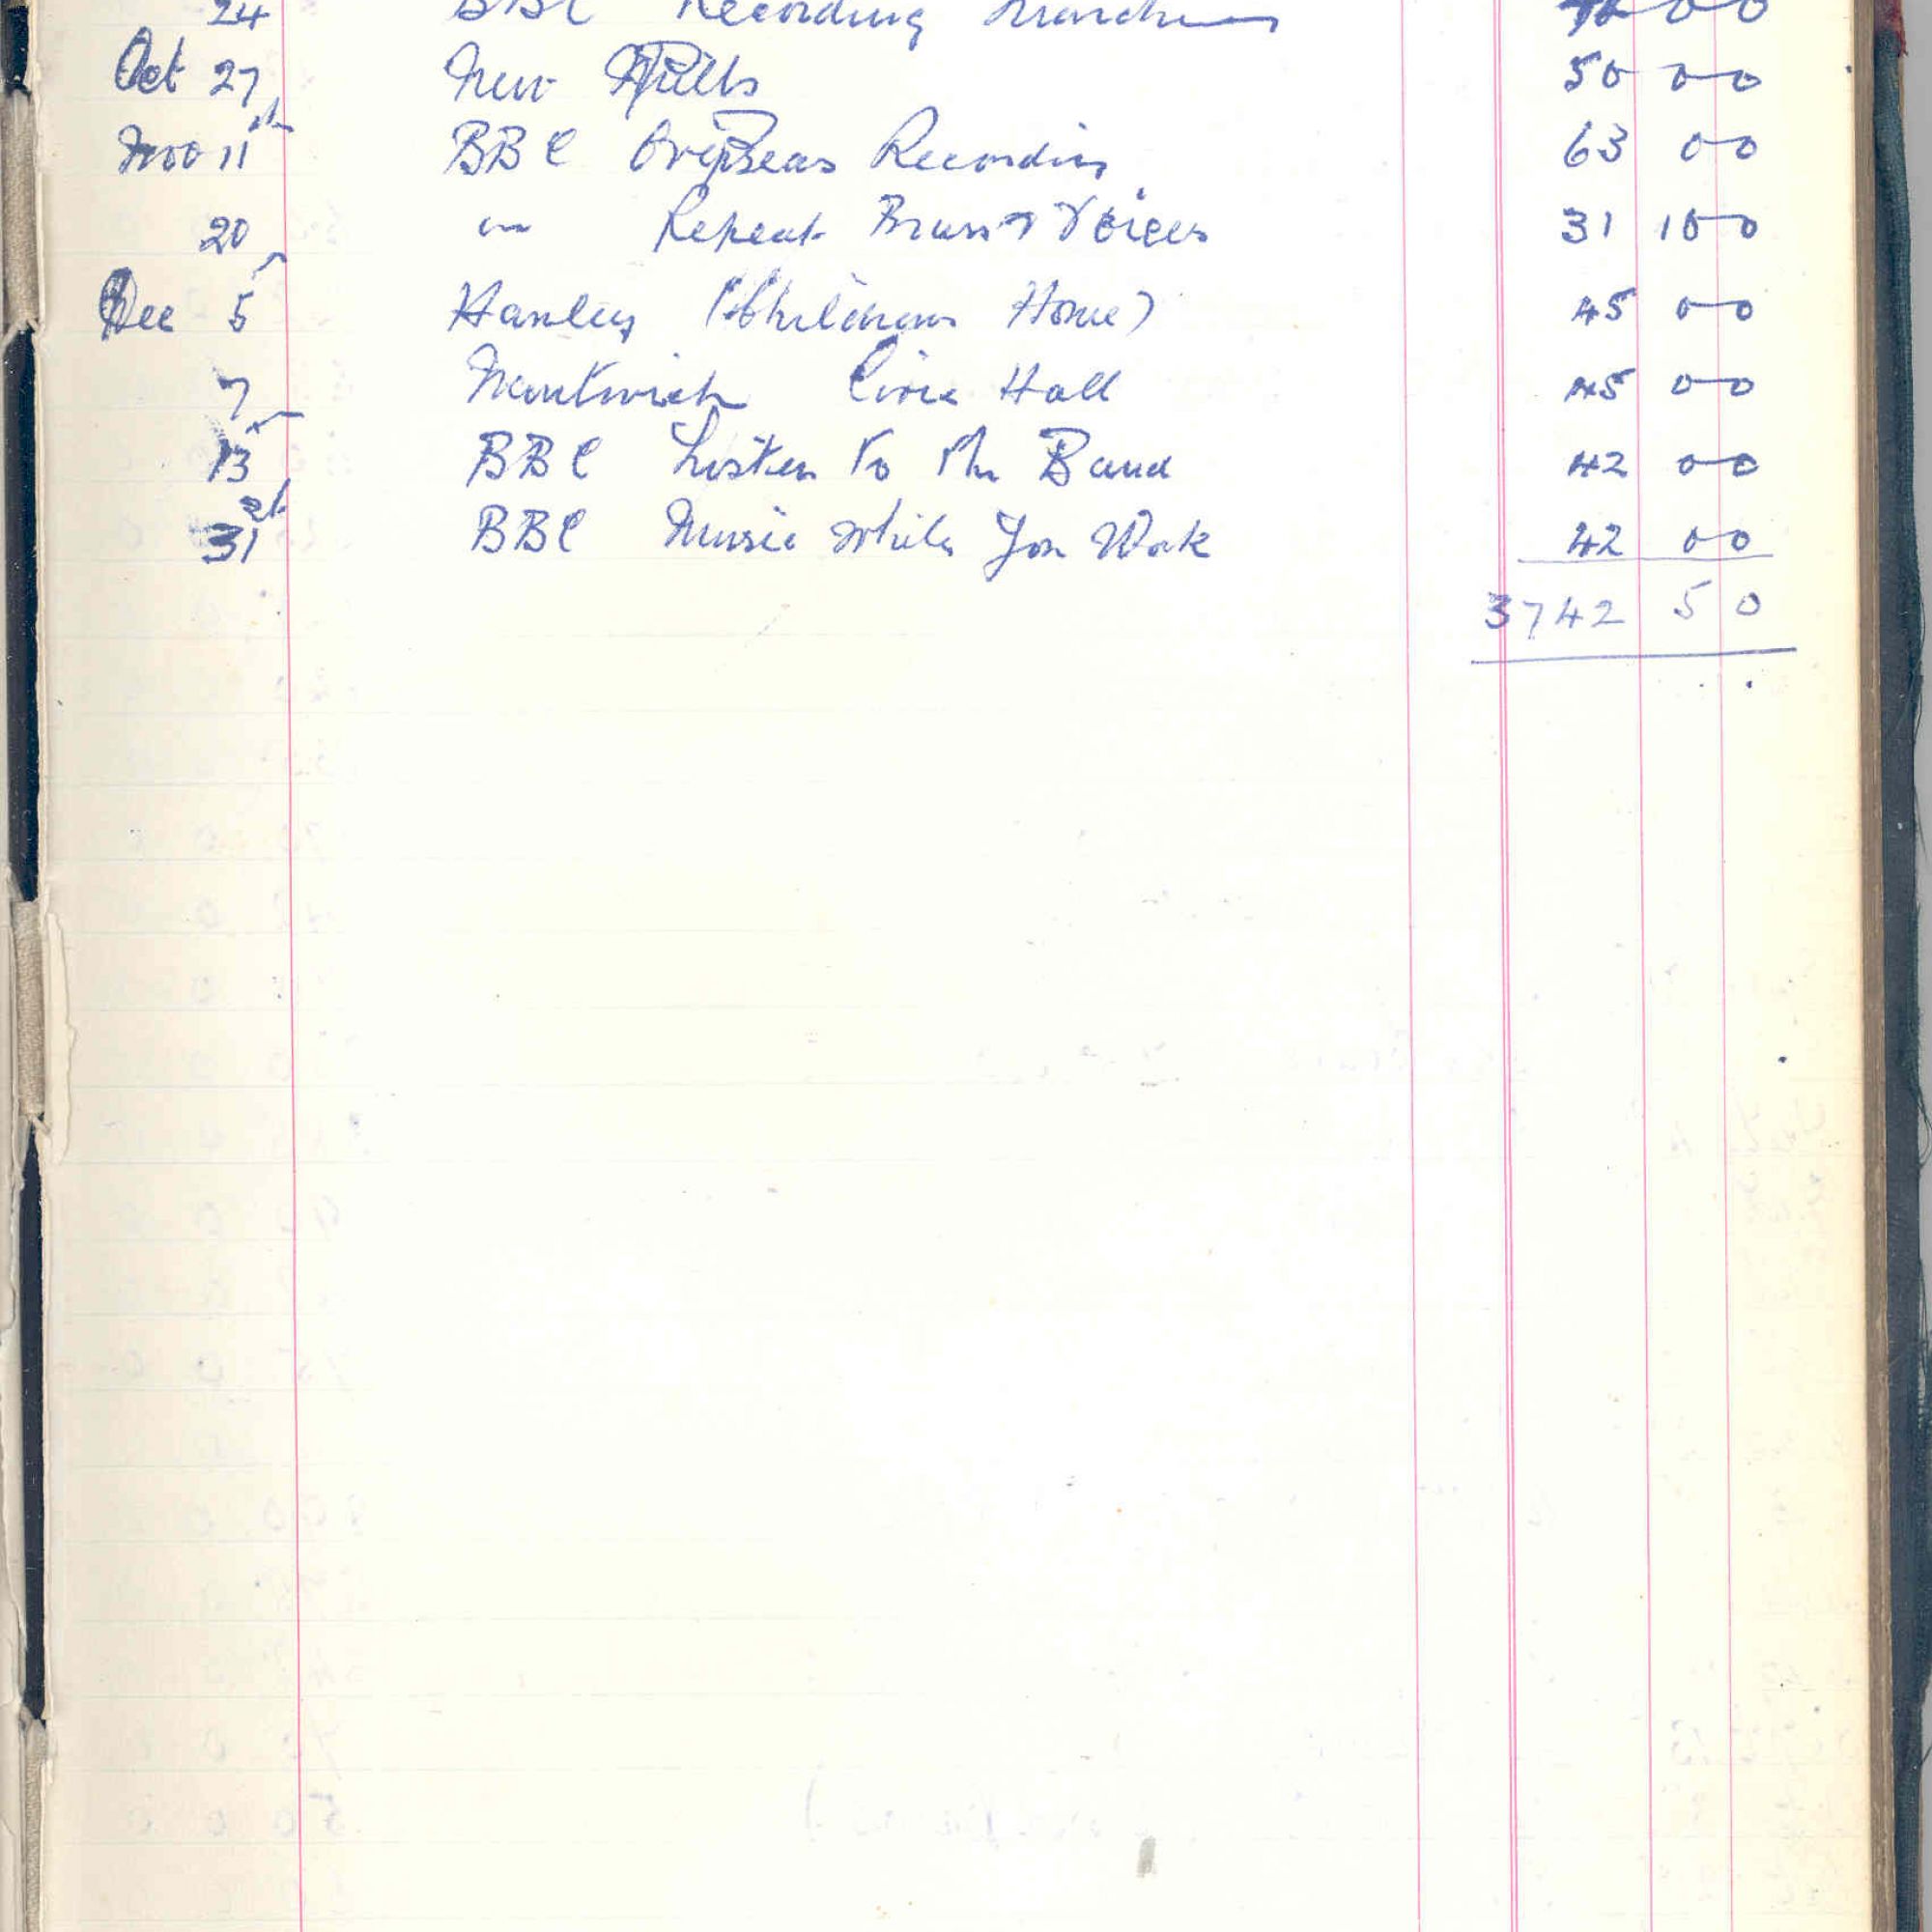 24 BBC Recording 00
Oct 27 New Mills 50 00
Nov 11th BBC Overseas Recording 63 00
20 Repeat Brass & Voices 31 10 0
Dec 5 Hanley (Childrens Home) 45 00
7 Nantwich Civic Hall 45 00
13 BBC Listen To The Band 42 00
31st BBC Music While You Work 42 00
3742 5 0